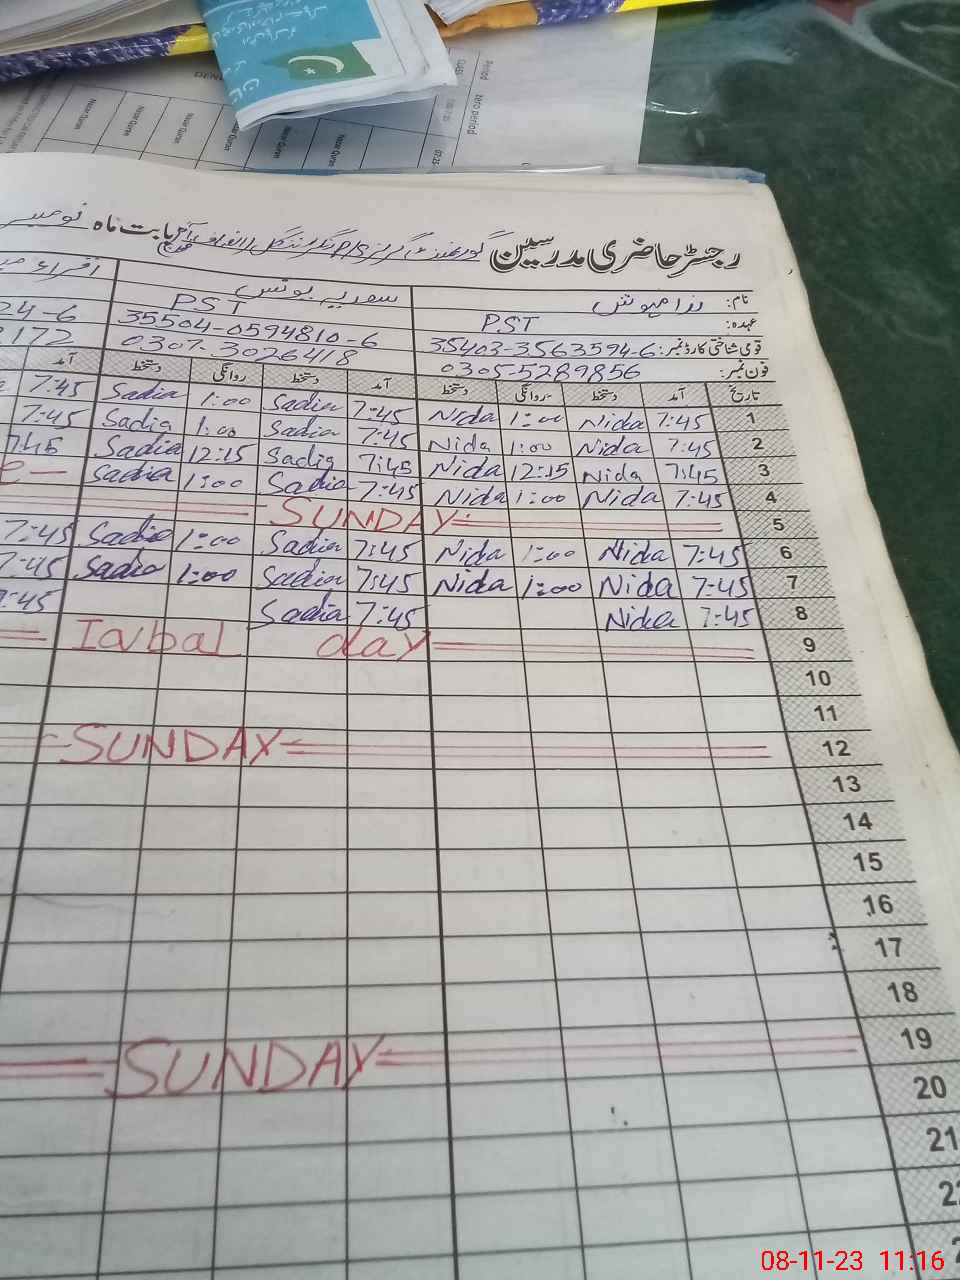 رجسٹر حاضری مدرسین گورنمنٹ گرلز بابت ماہ نومبر
نام: ندا مہوش سعدیہ یونس
عہدہ: PST PST
قومی شناختی کارڈ نمبر: 35403-3563594-6 35504-0594810-6 24-6
فون نمبر: 0305-5289856 0307-3026418 172
تاریخ آمد دستخط روانگی دستخط آمد دستخط روانگی دستخط آمد
1 7:45 Nida 1:00 Nida 7:45 Sadia 1:00 Sadia 7:45
2 7:45 Nida 1:00 Nida 7:45 Sadia 1:00 Sadia 7:45
3 7:45 Nida 12:15 Nida 7:45 Sadia 12:15 Sadia 7:45
4 7:45 Nida 1:00 Nida 7:45 Sadia 1:00 Sadia
5 SUNDAY
6 7:45 Nida 1:00 Nida 7:45 Sadia 1:00 Sadia 7:45
7 7:45 Nida 1:00 Nida 7:45 Sadia 1:00 Sadia 7:45
8 7:45 Nida 7:45 Sadia 7:45
9 Iqbal day
10
11
12 SUNDAY
13
14
15
16
17
18
19 SUNDAY
20
21
Period zero period
Nazar Quran
Nazar Quran
Nazar Quran
Nazar Quran
Nazar Quran
08-11-23 11:16